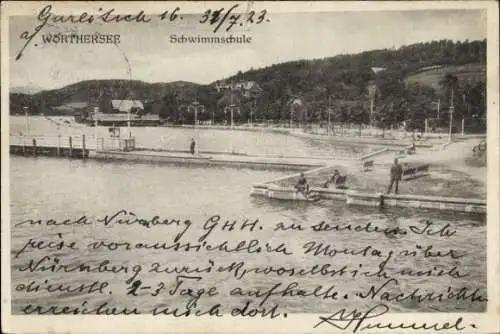 Garlitsch 16. 31/7 23.
WÖRTHERSEE Schwimmschule
nach Nürnberg GHH. zu senden. Ich
reise voraussichtlich Montag über
Nürnberg zurück, woselbst ich mich
dienstl. 2-3 Tage aufhalte. Nachrichten
erreichen mich dort.
Himmel.